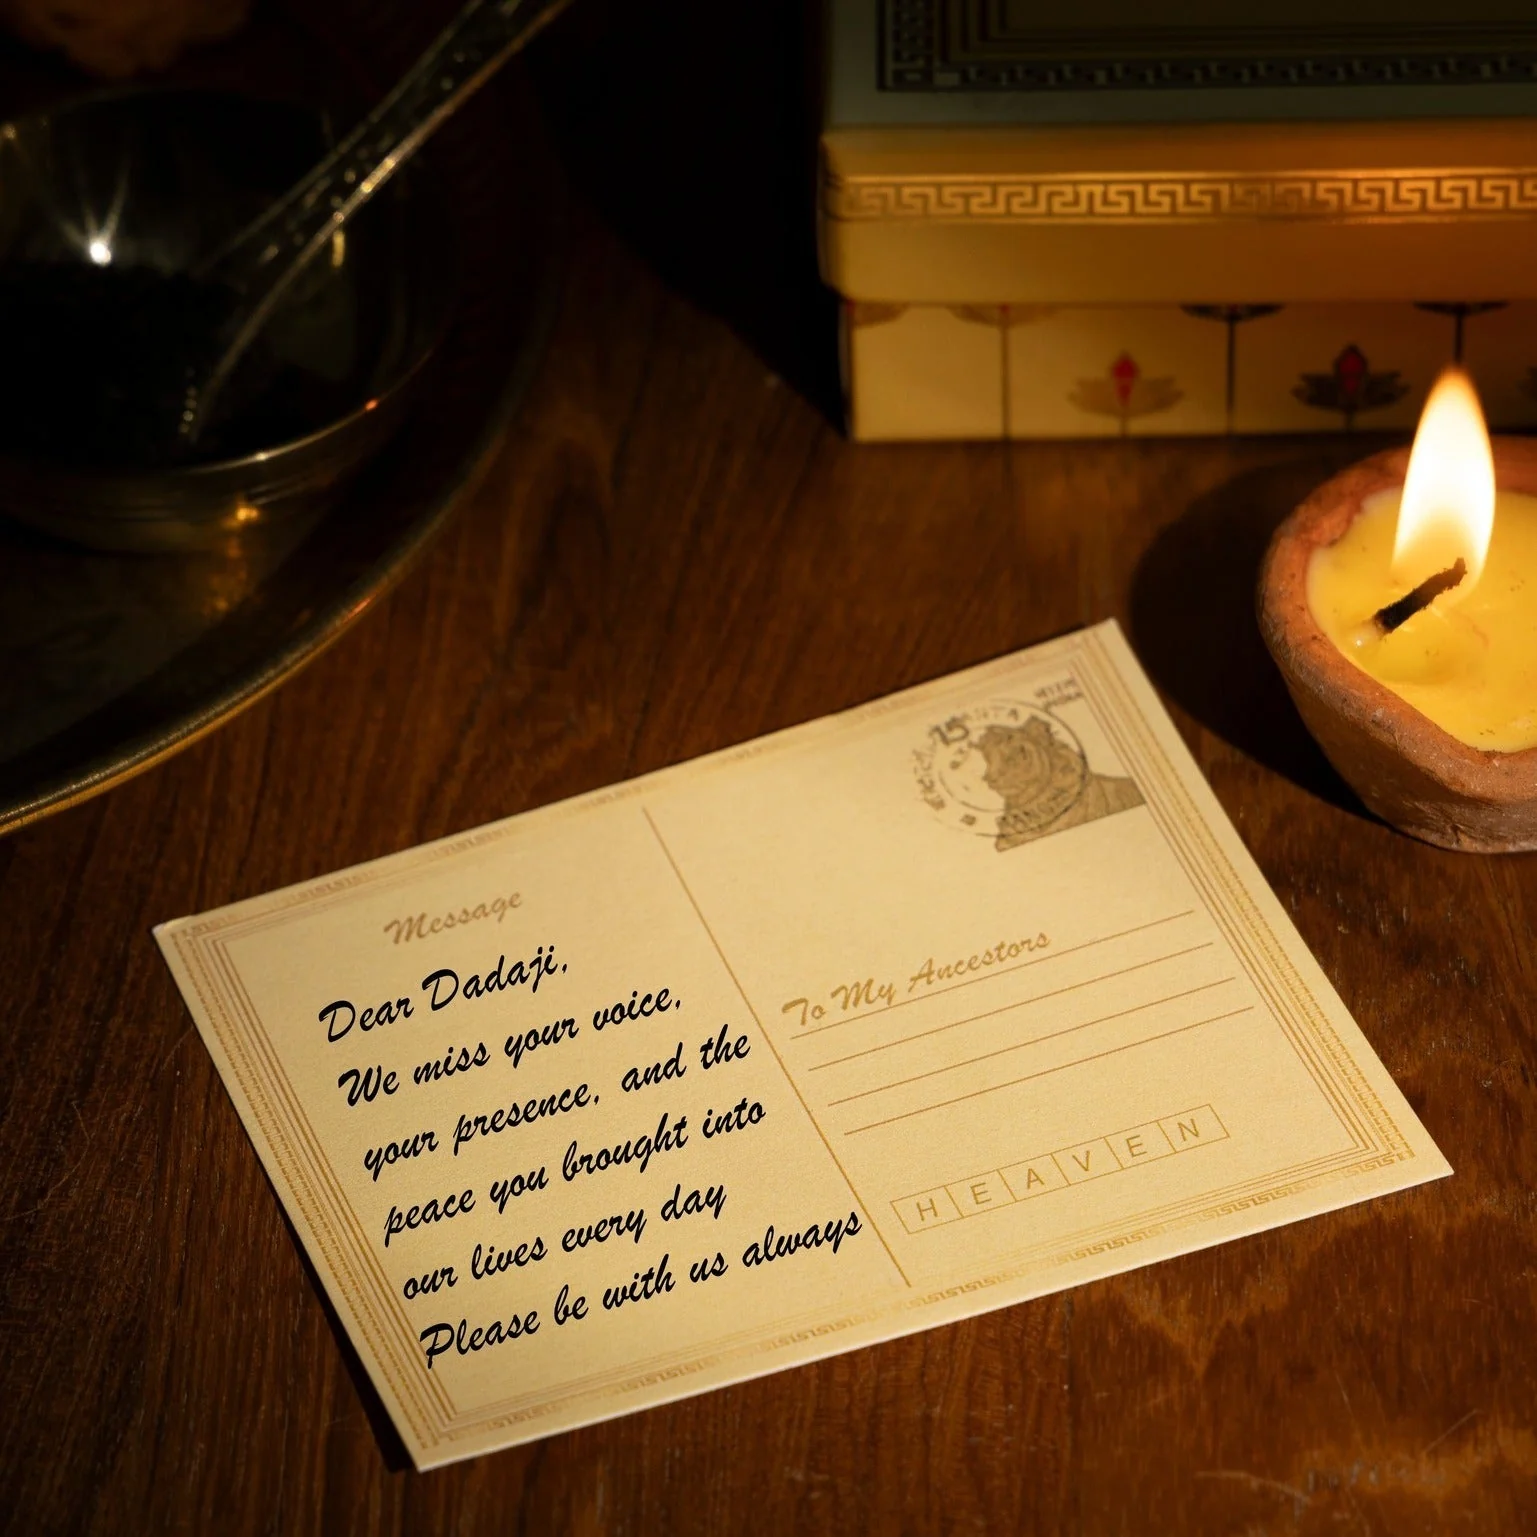 Message
Dear Dadaji,
We miss your voice,
your presence, and the
peace you brought into
our lives every day
Please be with us always
15
To My Ancestors
HEAVEN